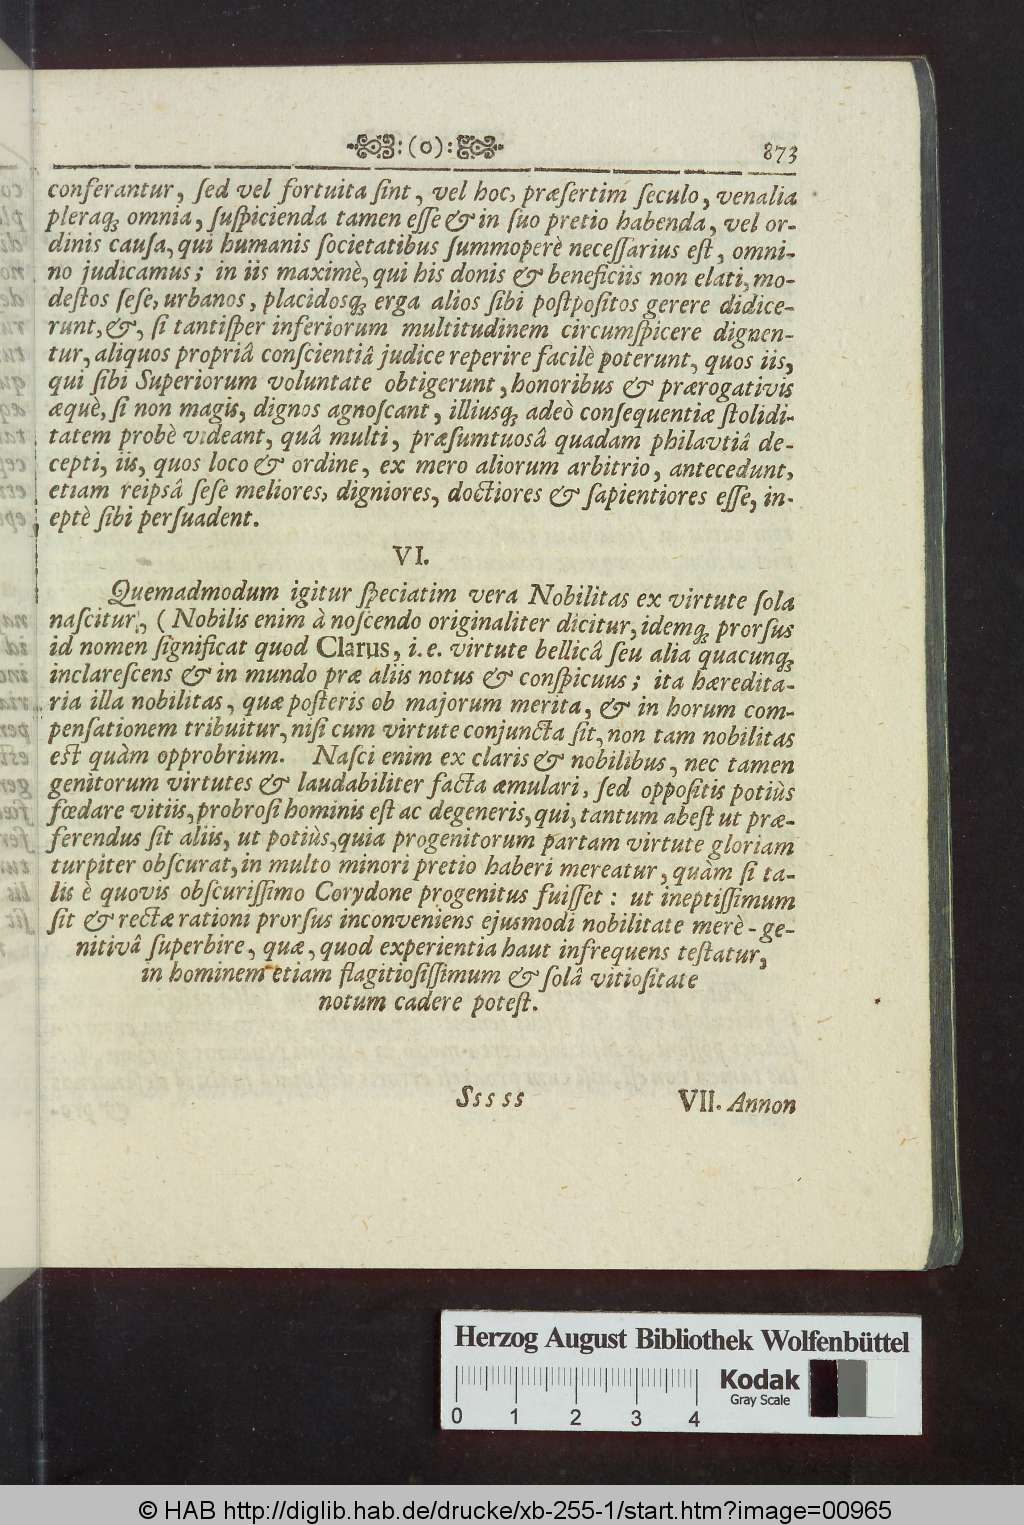 :(o): 873
conferantur, ſed vel fortuita ſint, vel hoc, præſertim ſeculo, venalia
pleraq́; omnia, ſuſpicienda tamen eſſe & in ſuo pretio habenda, vel or-
dinis cauſa, qui humanis ſocietatibus ſummoperè neceſſarius eſt, omni-
no judicamus; in iis maximè, qui his donis & beneficiis non elati, mo-
deſtos ſeſe, urbanos, placidosq́; erga alios ſibi poſtpoſitos gerere didice-
runt, &, ſi tantiſper inferiorum multitudinem circumſpicere dignen-
tur, aliquos propriâ conſcientiâ judice reperire facilè poterunt, quos iis,
qui ſibi Superiorum voluntate obtigerunt, honoribus & prærogativis
æquè, ſi non magis, dignos agnoſcant, illiusq́; adeò conſequentiæ ſtolidi-
tatem probè videant, quâ multi, præſumtuosâ quadam philavtiâ de-
cepti, iis, quos loco & ordine, ex mero aliorum arbitrio, antecedunt,
etiam reipsâ ſeſe meliores, digniores, doctiores & ſapientiores eſſe, in-
eptè ſibi perſuadent.
VI.
Quemadmodum igitur ſpeciatim vera Nobilitas ex virtute ſola
naſcitur, (Nobilis enim à noſcendo originaliter dicitur, idemq́; prorſus
id nomen ſignificat quod Clarus, i. e. virtute bellicâ ſeu alia quacunq́;
inclareſcens & in mundo præ aliis notus & conſpicuus; ita hæredita-
ria illa nobilitas, quæ poſteris ob majorum merita, & in horum com-
penſationem tribuitur, niſi cum virtute conjuncta ſit, non tam nobilitas
eſt quàm opprobrium. Naſci enim ex claris & nobilibus, nec tamen
genitorum virtutes & laudabiliter facta æmulari, ſed oppoſitis potiùs
fœdare vitiis, probroſi hominis eſt ac degeneris, qui, tantum abeſt ut præ-
ferendus ſit aliis, ut potiùs, quia progenitorum partam virtute gloriam
turpiter obſcurat, in multo minori pretio haberi mereatur, quàm ſi ta-
lis è quovis obſcuriſſimo Corydone progenitus fuiſſet: ut ineptiſſimum
ſit & rectæ rationi prorſus inconveniens ejusmodi nobilitate merè-ge-
nitivâ ſuperbire, quæ, quod experientia haut infrequens teſtatur,
in hominem etiam flagitioſiſſimum & ſolâ vitioſitate
notum cadere poteſt.
Sss ss VII. Annon
Herzog August Bibliothek Wolfenbüttel
Kodak
Gray Scale
0 1 2 3 4
© HAB http://diglib.hab.de/drucke/xb-255-1/start.htm?image=00965